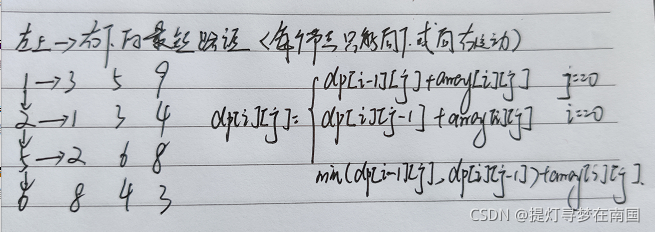 左上→右下的最短路径（每个节点只能向下或向右移动）
1→3 5 9
2→1 3 4
5→2 6 8
8 8 4 3
dp[i][j]=
dp[i-1][j]+array[i][j] j==0
dp[i][j-1]+array[i][j] i==0
min(dp[i-1][j],dp[i][j-1])+array[i][j].
CSDN @提灯寻梦在南国